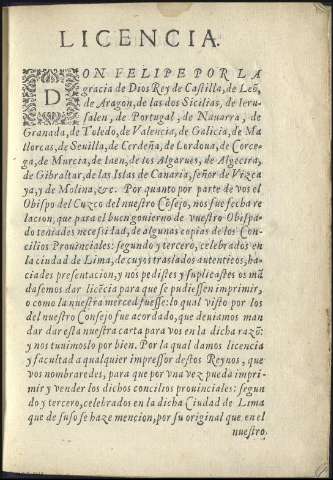 LICENCIA.
DON FELIPE POR LA
gracia de Dios Rey de Castilla, de Leõ,
de Aragon, de las dos Sicilias, de Ieru-
salen, de Portugal, de Nauarra, de
Granada, de Toledo, de Valencia, de Galicia, de Ma
llorcas, de Seuilla, de Cerdeña, de Cordoua, de Corce-
ga, de Murcia, de Iaen, de los Algarues, de Algecira,
de Gibraltar, de las Islas de Canaria, señor de Vizca
ya, y de Molina, &c. Por quanto por parte de vos el
Obispo del Cuzco del nuestro Cõsejo, nos fue fecha re
lacion, que para el buen gouierno de vuestro Obispa-
do teniades necessidad, de algunas copias de los Con-
cilios Prouinciales: segundo y tercero, celebrados en
la ciudad de Lima, de cuyos traslados autenticos, ha-
ciades presentacion, y nos pedistes y suplicastes os mã
dassemos dar licẽcia para que se pudiessen imprimir,
o como la nuestra merced fuesse: lo qual visto por los
del nuestro Consejo fue acordado, que deuiamos man
dar dar esta nuestra carta para vos en la dicha razõ:
y nos tuuimoslo por bien. Por la qual damos licencia
y facultad a qualquier impressor destos Reynos, que
vos nombraredes, para que por vna vez pueda impri-
mir y vender los dichos concilios prouinciales: segun
do y tercero, celebrados en la dicha Ciudad de Lima
que de suso se haze mencion, por su original que en el
nuestro